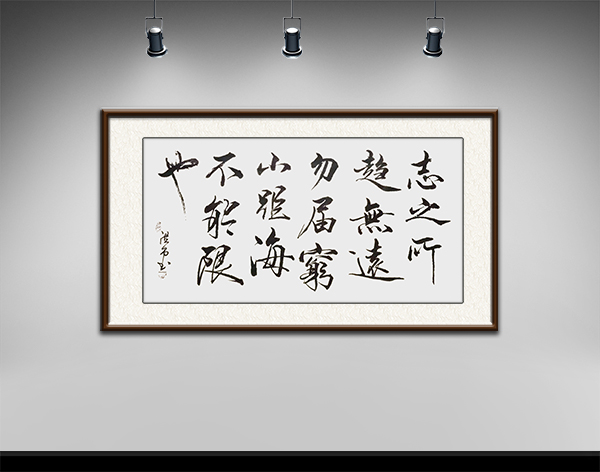 志之所
趋無遠
勿届窮
山距海
不能限
也